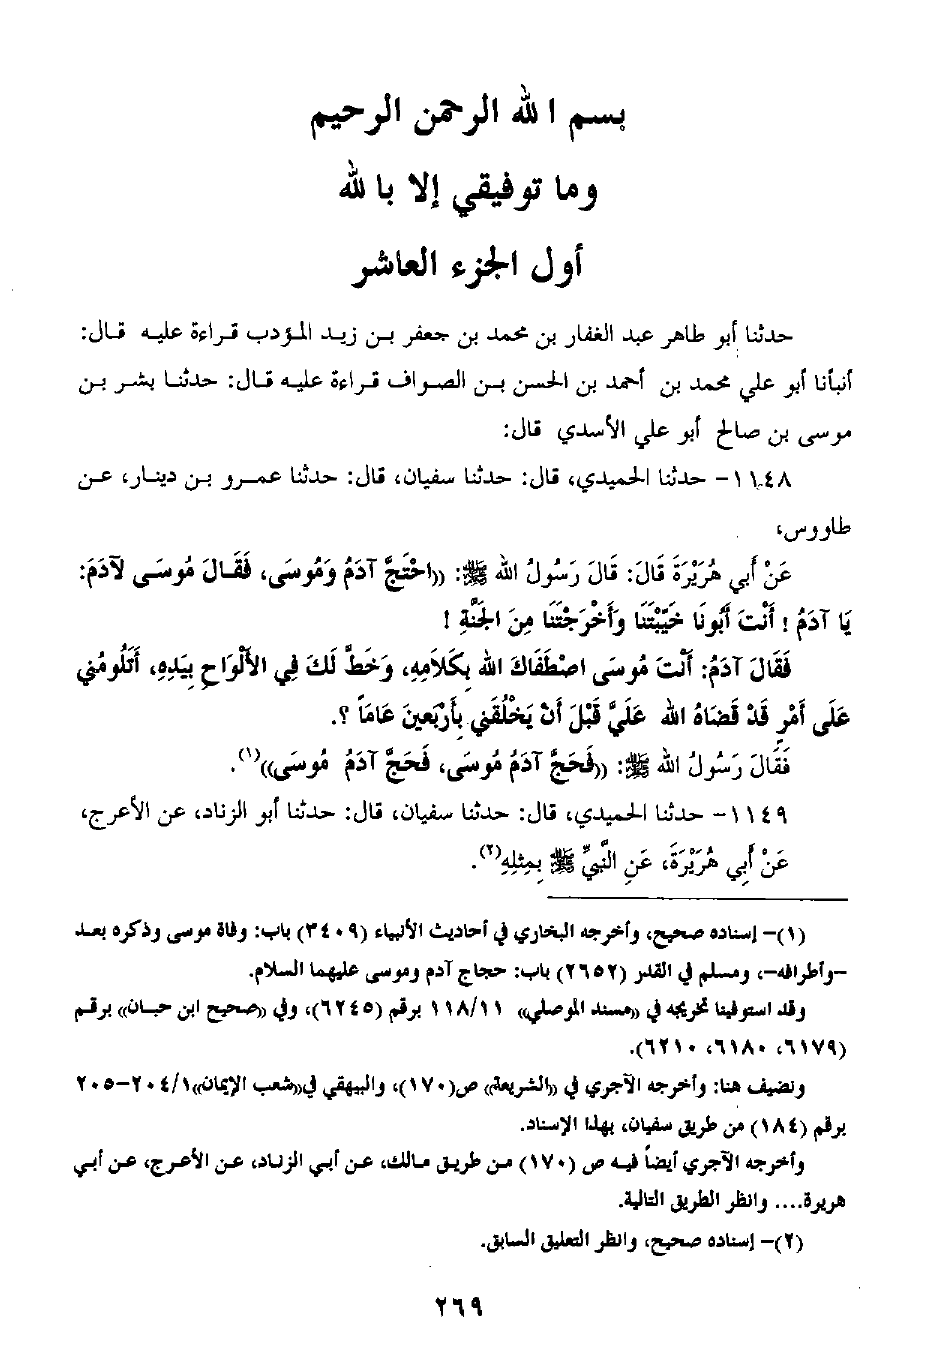 بسم الله الرحمن الرحيم
وما توفيقي إلا بالله
أول الجزء العاشر
حدثنا أبو طاهر عبد الغفار بن محمد بن جعفر بن زيد المؤدب قراءة عليه قال:
أنبأنا أبو علي محمد بن أحمد بن الحسن بن الصواف قراءة عليه قال: حدثنا بشر بن
موسى بن صالح أبو علي الأسدي قال:
١١٤٨- حدثنا الحميدي، قال: حدثنا سفيان، قال: حدثنا عمرو بن دينار، عن
طاووس،
عَنْ أَبِي هُرَيْرَةَ قَالَ: قَالَ رَسُولُ الله ﷺ: ((احْتَجَّ آدَمُ وَمُوسَى، فَقَالَ مُوسَى لآدَمَ:
يَا آدَمُ ! أَنْتَ أَبُونَا خَيَّبْتَنَا وَأَخْرَجْتَنَا مِنَ الجَنَّةِ !
فَقَالَ آدَمُ: أَنْتَ مُوسَى اصْطَفَاكَ الله بِكَلَامِهِ، وَخَطَّ لَكَ فِي الأَلْوَاحِ بِيَدِهِ، أَتَلُومُنِي
عَلَى أَمْرٍ قَدْ قَضَاهُ الله عَلَيَّ قَبْلَ أَنْ يَخْلُقَنِي بِأَرْبَعِينَ عَاماً ؟.
فَقَالَ رَسُولُ الله ﷺ: ((فَحَجَّ آدَمُ مُوسَى، فَحَجَّ آدَمُ مُوسَى))(١).
١١٤٩- حدثنا الحميدي، قال: حدثنا سفيان، قال: حدثنا أبو الزناد، عن الأعرج،
عَنْ أَبِي هُرَيْرَةَ، عَنِ النَّبِيِّ ﷺ بِمِثْلِهِ(٢).
(١)- إسناده صحيح، وأخرجه البخاري في أحاديث الأنبياء (٣٤٠٩) باب: وفاة موسى وذكره بعد
-وأطرافه-، ومسلم في القدر (٢٦٥٢) باب: حجاج آدم وموسى عليهما السلام.
وقد استوفينا تخريجه في ((مسند الموصلي)) ١١٨/١١ برقم (٦٢٤٥)، وفي ((صحيح ابن حبان)) برقم
(٦١٧٩، ٦١٨٠، ٦٢١٠).
ونضيف هنا: وأخرجه الآجري في ((الشريعة)) ص(١٧٠)، والبيهقي في((شعب الإيمان))٢٠٤/١-٢٠٥
برقم (١٨٤) من طريق سفيان، بهذا الإسناد.
وأخرجه الآجري أيضاً فيه ص (١٧٠) من طريق مالك، عن أبي الزناد، عن الأعرج، عن أبي
هريرة.... وانظر الطريق التالية.
(٢)- إسناده صحيح، وانظر التعليق السابق.
٢٦٩